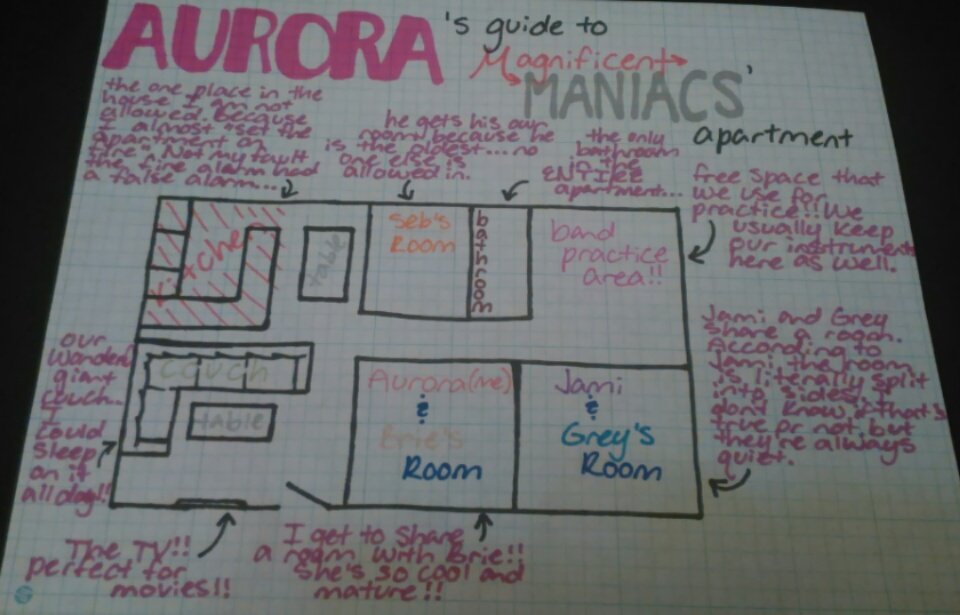 AURORA
's guide to
Magnificent
MANIACS'
apartment
the one place in the
house I am not
allowed. Because
I almost "set the
apartment on
fire". Not my fault
the fire alarm had
a false alarm...
he gets his own
room because he
is the oldest... no
one else is
allowed in.
the only
bathroom
in the
ENTIRE
apartment...
free space that
we use for
practice!! We
usually keep
our instruments
here as well.
kitchen
table
Seb's
Room
bathroom
band
practice
area!!
our
giant
couch.
I
could
sleep
on it
all day!!
couch
table
Aurora(me)
&
Brie's
Room
Jami
&
Grey's
Room
Jami and Grey
share a room.
According to
Jami the room
is literally split
into sides. I
don't know if that's
true or not but
they're always
quiet.
The TV!!
perfect for
movies!!
I get to share
a room with Brie!!
She's so cool and
mature!!